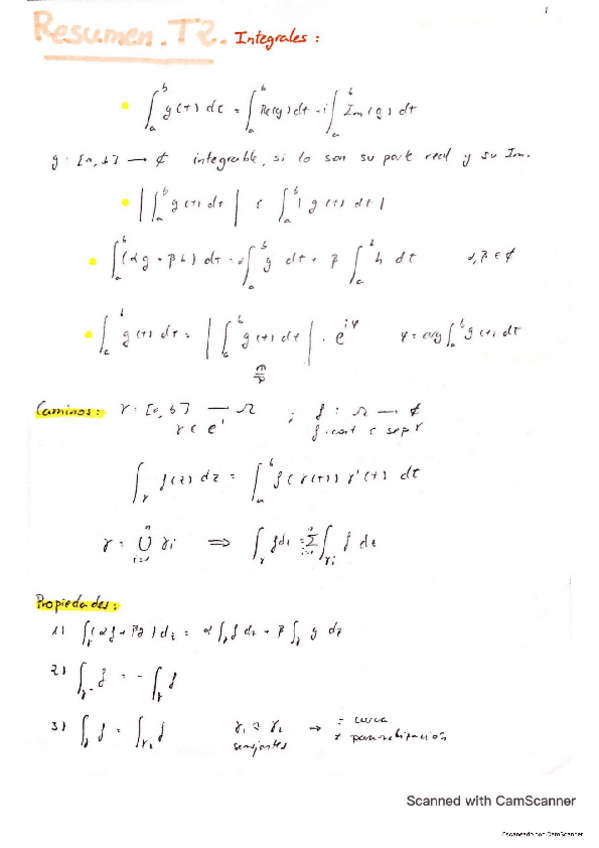 1
Resumen. T2. Integrales:
∫_a^b g(t) dt = ∫_a^b Re(g) dt + i ∫_a^b Im(g) dt
g: [a, b] → ₵ integrable, si lo son su parte real y su Im.
|∫_a^b g(t) dt| ≤ ∫_a^b |g(t) dt|
∫_a^b (αg + βh) dt = α∫_a^b g dt + β ∫_a^b h dt α, β ∈ ₵
∫_a^b g(t) dt = |∫_a^b g(t) dt| · e^{iφ} φ = arg ∫_a^b g(t) dt
Caminos: γ: [a, b] → Ω ; f: Ω → ₵
γ ∈ C¹ f cont
∫_γ f(z) dz = ∫_a^b f(γ(t)) γ'(t) dt
γ = ⋃_{i=1}^n γi ⟹ ∫_γ f dz = Σ_{i=1}^n ∫_{γi} f dz
Propiedades:
1) ∫_γ (αf + βg) dz = α∫_γ f dz + β ∫_γ g dz
2) ∫_{γ-} f = - ∫_γ f
3) ∫_γ f = ∫_{γ1} f γ1 ≈ γ2 → = curva
semejantes ≠ parametrización
Scanned with CamScanner
Escaneado con CamScanner